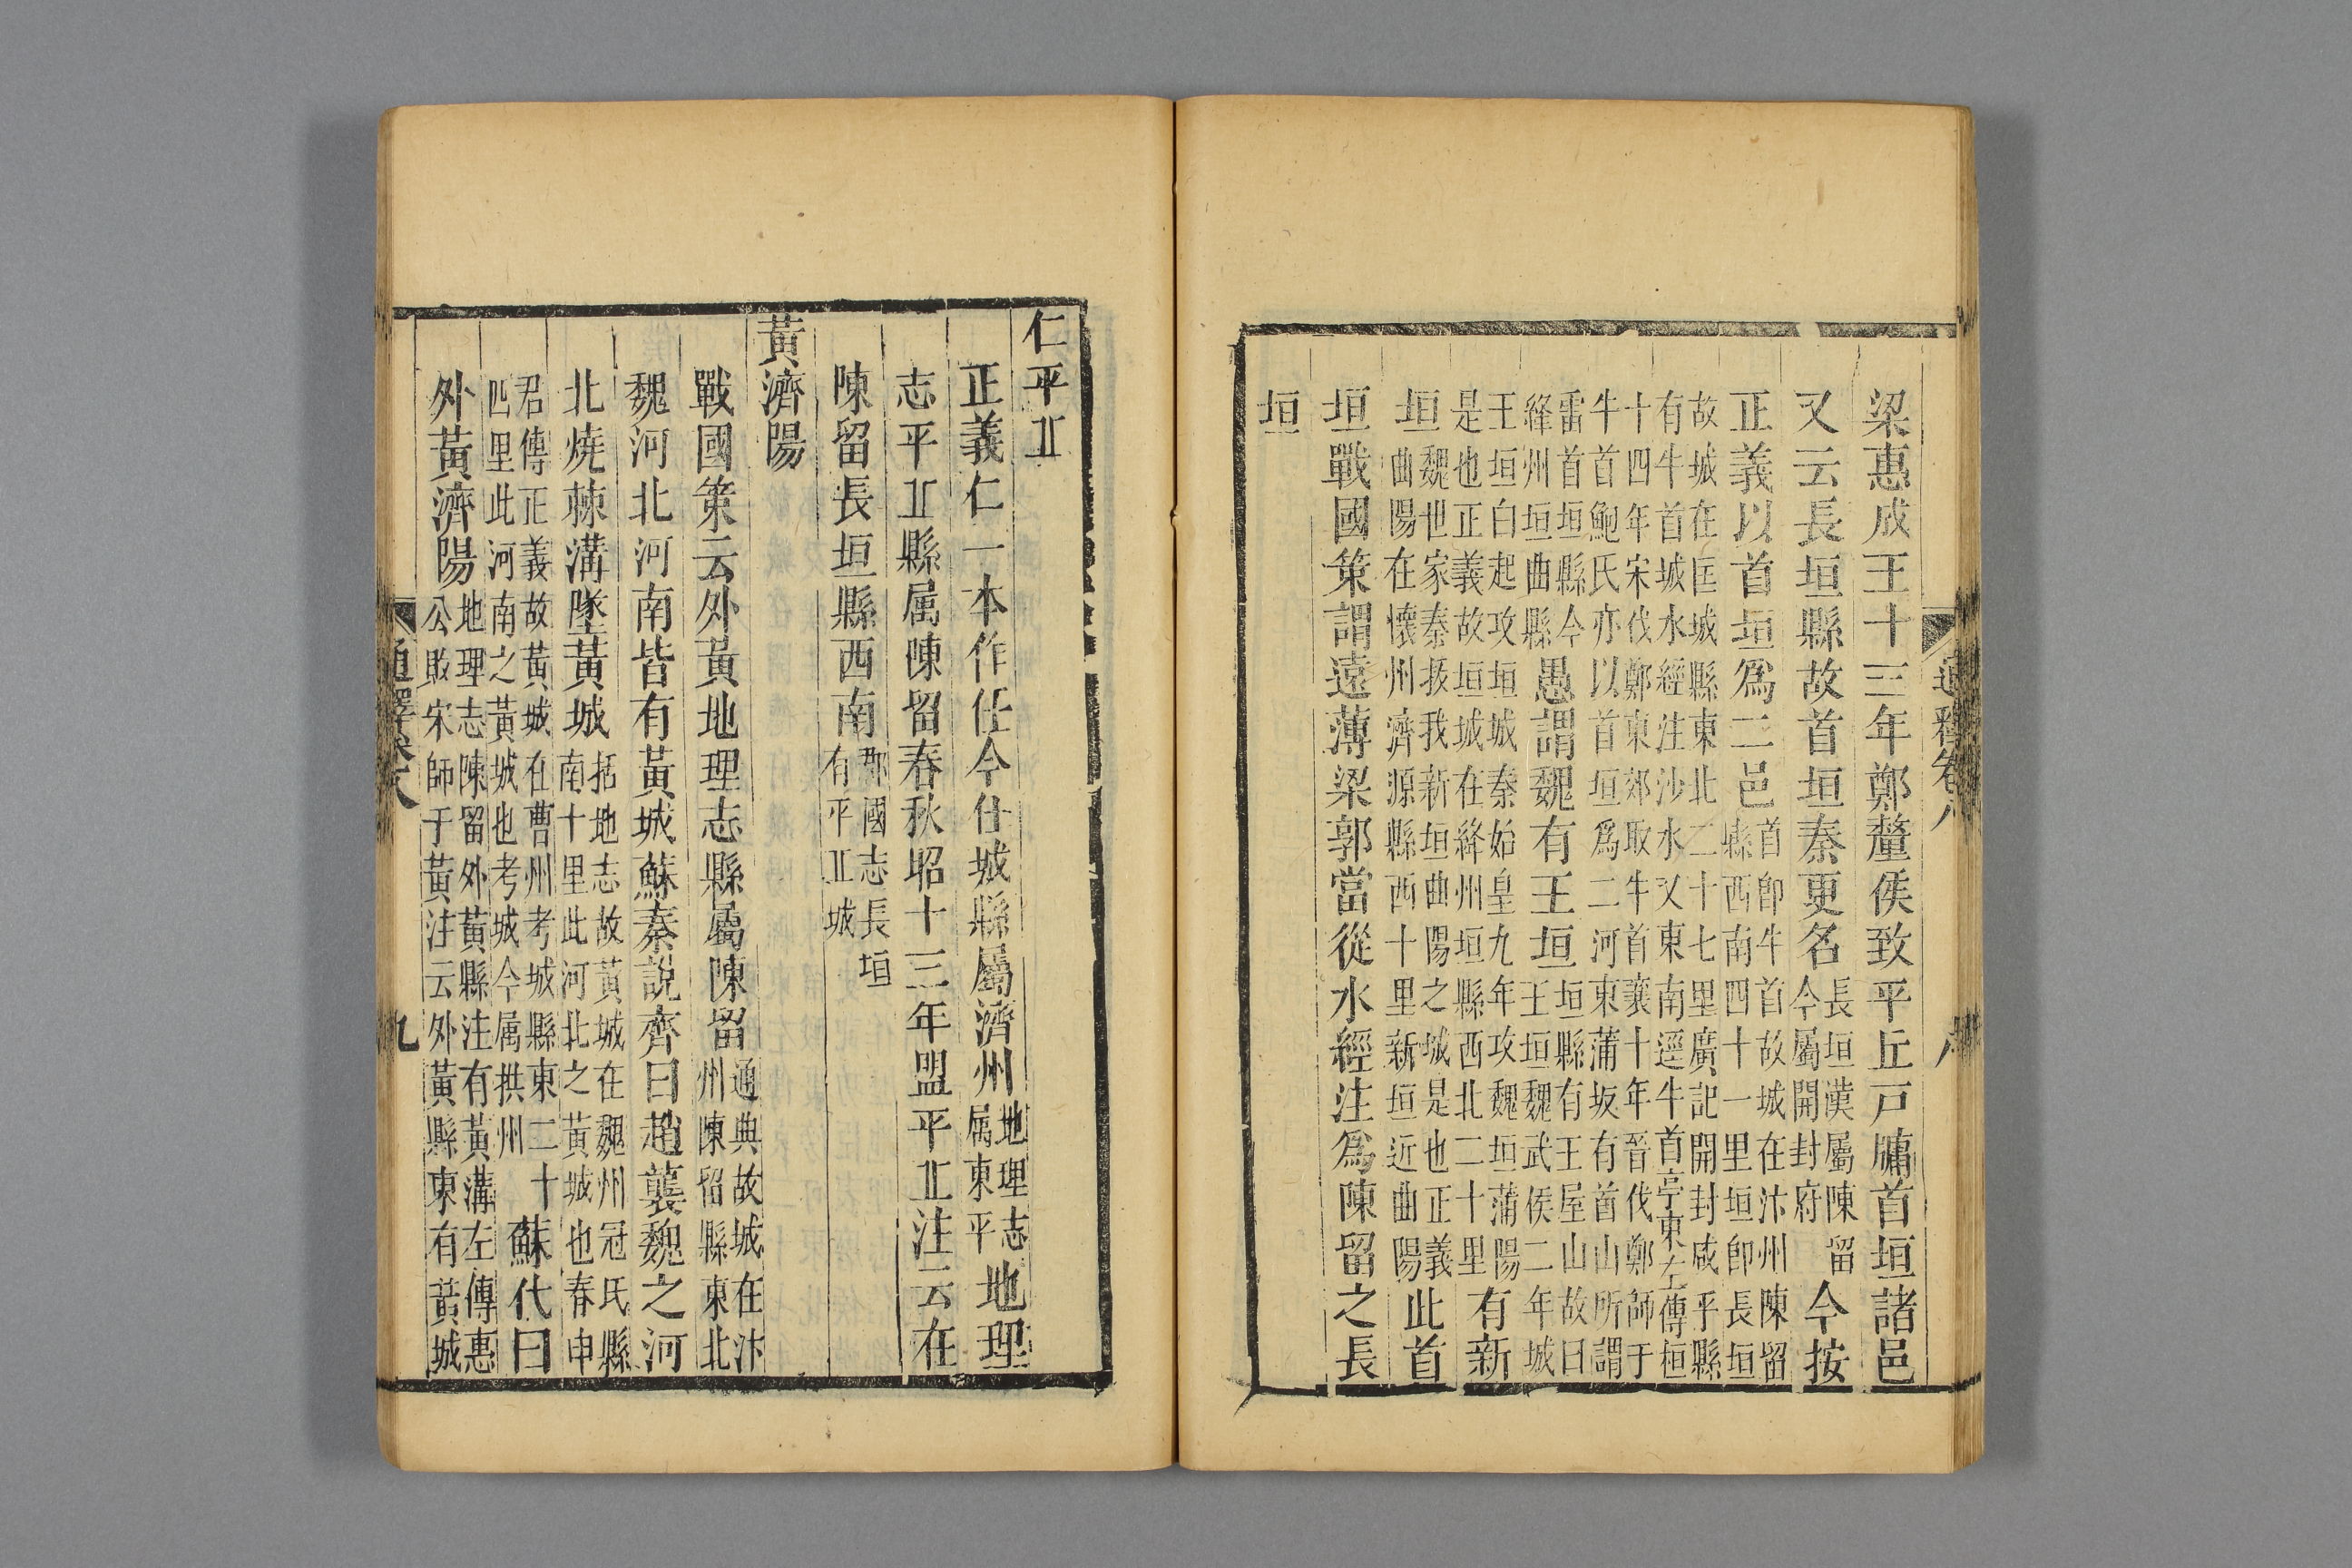 梁惠成王十三年鄭釐侯致平丘戸牖首垣諸邑
又云長垣縣故首垣秦更名長垣漢屬陳留今屬開封府今按
正義以首垣爲二邑首卽牛首故城在汴州陳留縣西南四十一里垣卽長垣
故城在匡城縣東北二十七里廣記開封咸平縣有牛首城水經注沙水又東南逕牛首亭東左傳桓
十四年宋伐鄭東郊取牛首襄十年晉伐鄭師于牛首鮑氏亦以首垣爲二河東蒲坂有首山所謂
雷首垣垣縣今絳州垣曲縣愚謂魏有王垣垣縣有王屋山故曰王垣魏武侯二年城
王垣白起攻垣城秦始皇九年攻魏垣蒲陽是也正義故垣城在絳州垣縣西北二十里有新
垣魏世家秦拔我新垣曲陽之城是也正義曲陽在懷州濟源縣西十里新垣近曲陽此首
垣戰國策謂遠薄梁郭當從水經注爲陳留之長
垣
通釋卷八
八
仁平丘
正義仁一本作任今任城縣屬濟州地理志属東平地理
志平丘縣属陳留春秋昭十三年盟平丘注云在
陳留長垣縣西南郡國志長垣有平丘城
黃濟陽
戰國策云外黃地理志縣屬陳留通典故城在汴州陳留縣東北
魏河北河南皆有黃城蘇秦說齊曰趙襲魏之河
北燒棘溝墜黃城括地志故黃城在魏州冠氏縣南十里此河北之黃城也春申
君傳正義故黃城在曹州考城縣東二十四里此河南之黃城也考城今属拱州蘇代曰
外黃濟陽地理志陳留外黃縣注有黃溝左傳惠公敗宋師于黃注云外黃縣東有黃城
通釋卷八
九